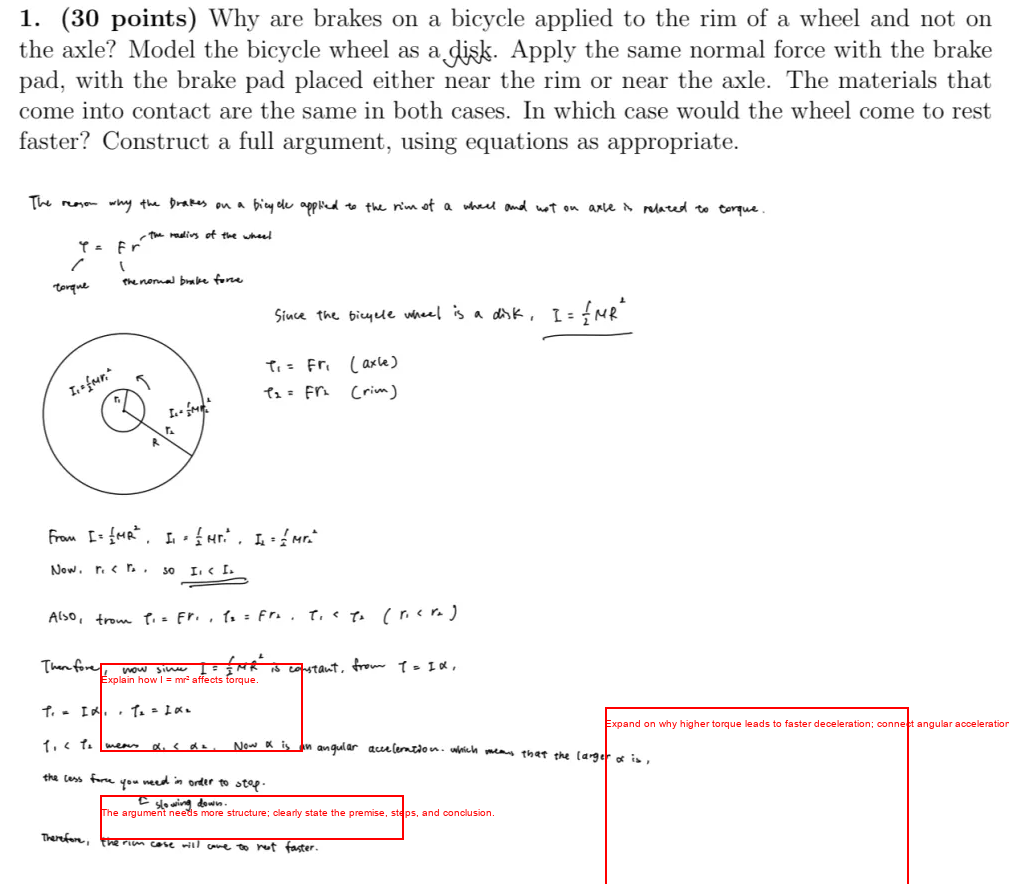 1. (30 points) Why are brakes on a bicycle applied to the rim of a wheel and not on
the axle? Model the bicycle wheel as a disk. Apply the same normal force with the brake
pad, with the brake pad placed either near the rim or near the axle. The materials that
come into contact are the same in both cases. In which case would the wheel come to rest
faster? Construct a full argument, using equations as appropriate.
The reason why the brakes on a bicycle applied to the rim of a wheel and not on axle is related to torque.
τ = Fr
the radius of the wheel
torque
the normal brake force
Since the bicycle wheel is a disk, I = 1/2 MR²
τ₁ = Fr₁ (axle)
τ₂ = Fr₂ (rim)
I₁ = 1/2 Mr₁²
r₁
I₂ = 1/2 Mr₂²
r₂
R
From I = 1/2 MR², I₁ = 1/2 Mr₁², I₂ = 1/2 Mr₂²
Now, r₁ < r₂, so I₁ < I₂
Also, from τ₁ = Fr₁, τ₂ = Fr₂, τ₁ < τ₂ (r₁ < r₂)
Therefore, now since I = 1/2 MR² is constant, from τ = Iα,
Explain how I = mr² affects torque.
τ₁ = Iα₁, τ₂ = Iα₂
Expand on why higher torque leads to faster deceleration; connect angular acceleration
τ₁ < τ₂ means α₁ < α₂. Now α is an angular acceleration. which means that the larger α is,
the less force you need in order to stop.
slowing down.
The argument needs more structure; clearly state the premise, steps, and conclusion.
Therefore, the rim case will come to rest faster.